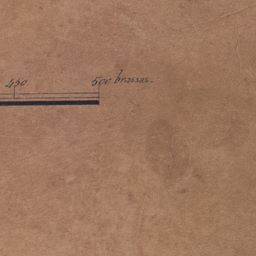 450 500 brassas.